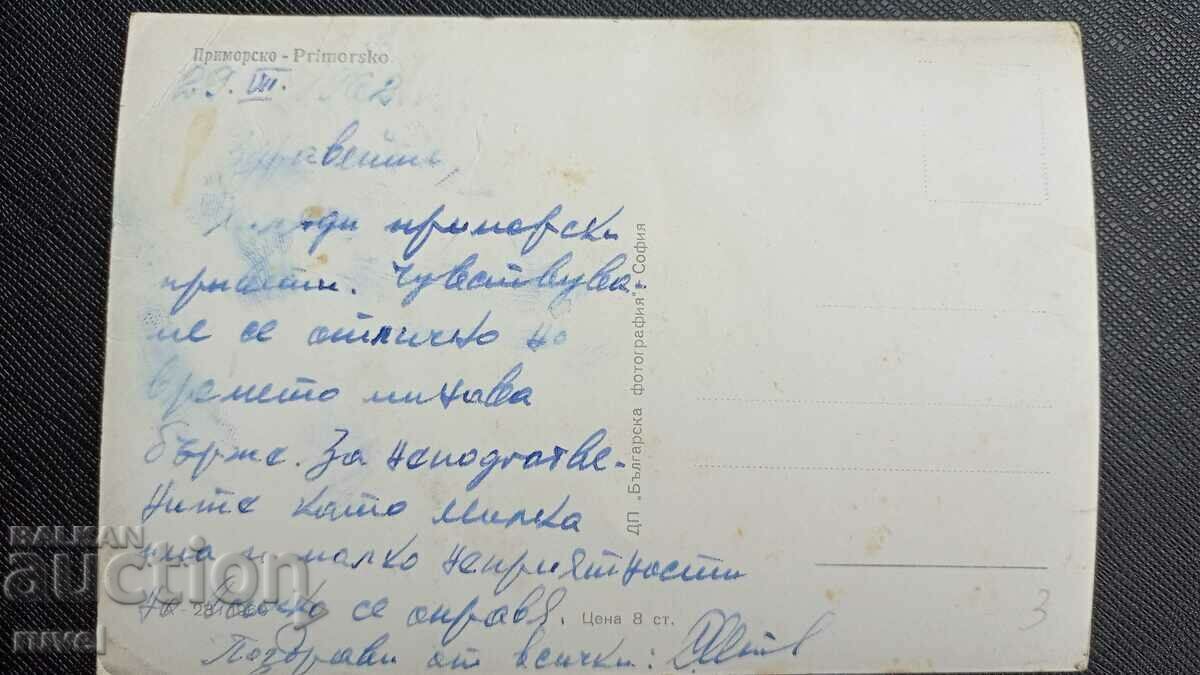 Приморско - Primorsko
29. VIII.
Здравейте,
приморски
Чувствува-
ме се отлично но
времето минава
бързо. За неподготве-
ните като Милка
има и малко неприятности
но всичко се оправя.
Цена 8 ст.
Поздрави от всички:
ДП „Българска фотография“ - София
3
BALKAN
auction
mvel